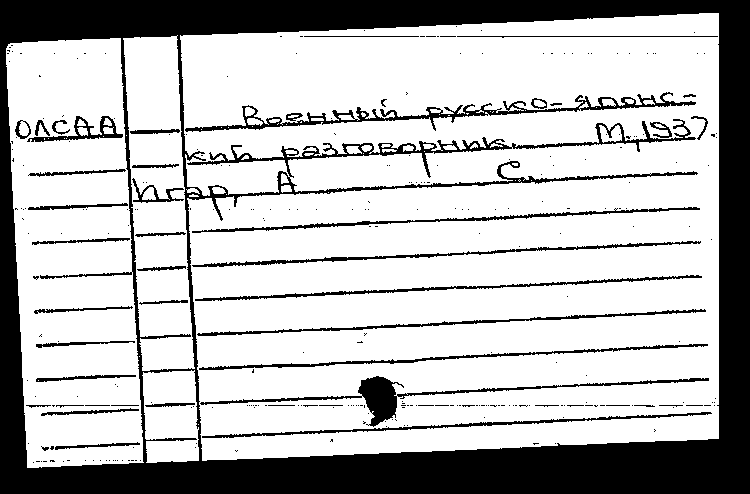 Военный русско-японс-
ОЛСАА
кий разговорник. М., 1937.
Игар, А С.